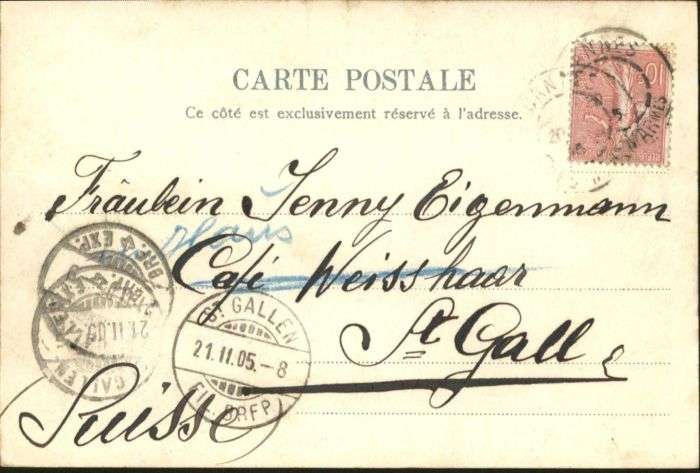 CARTE POSTALE
Ce côté est exclusivement réservé à l'adresse.
10
Fräulein Jenny Eigenmann
Café Weisshaar
St Gall
Suisse
BRF. EXP.
21.II.05
GALLEN
ST. GALLEN
21.II.05.-8